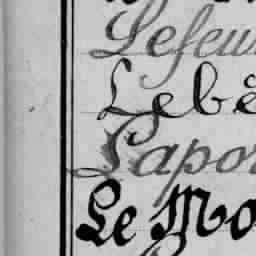 Lefeu
Lebe
Lapor
Le Mo